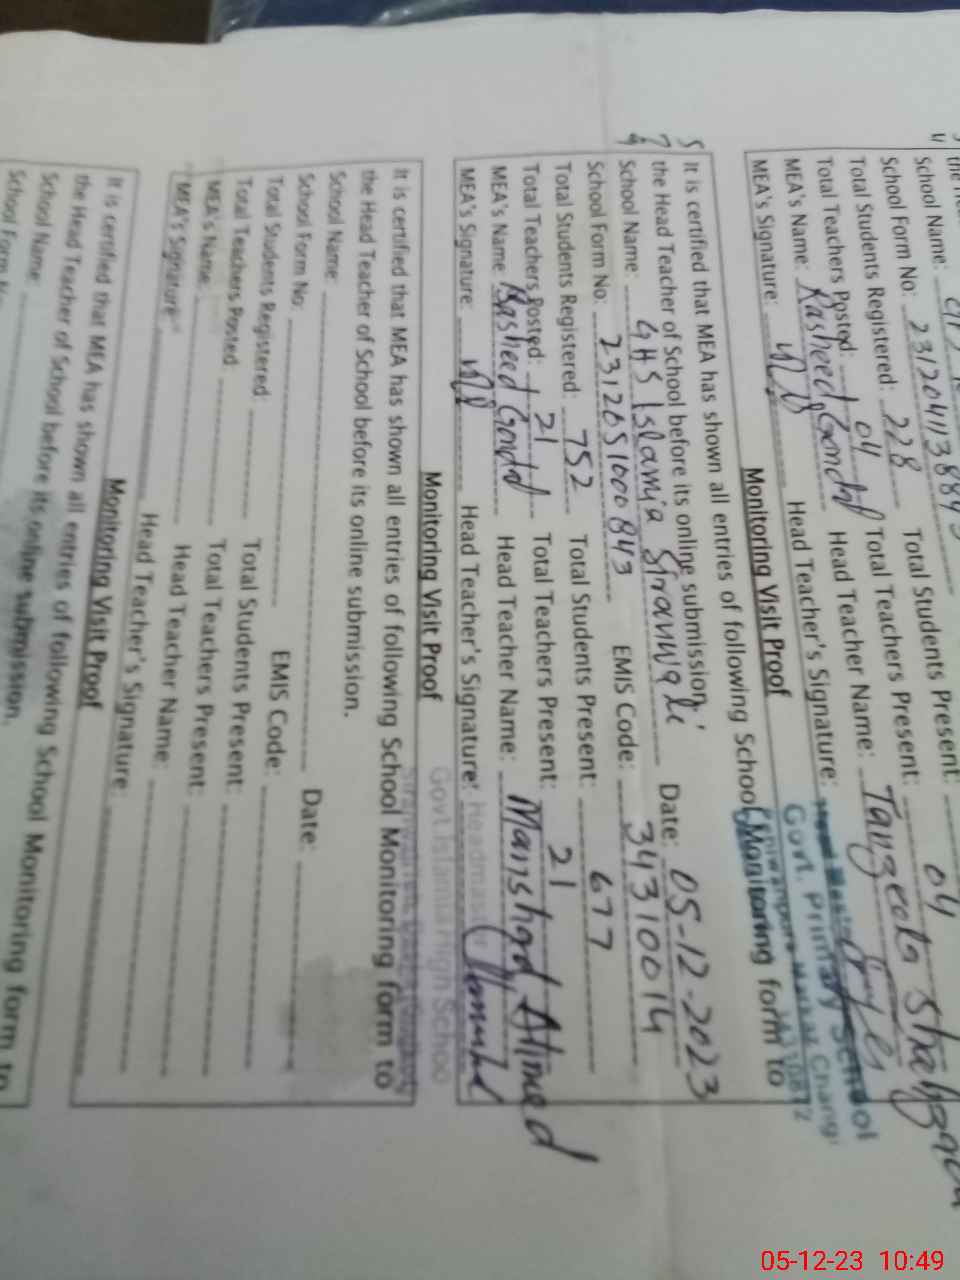 School Name:
School Form No: Total Students Present: 04
Total Students Registered: 228 Total Teachers Present:
Total Teachers Posted: 04 Head Teacher Name:
MEA's Name: Rasheed Gondal Head Teacher's Signature:
MEA's Signature:
Govt. Primary School
Monitoring Visit Proof
It is certified that MEA has shown all entries of following School Monitoring form to
the Head Teacher of School before its online submission.
School Name: GHS Islamia Siranwali Date: 05-12-2023
School Form No: 2312051000843 EMIS Code: 34310014
Total Students Registered: 752 Total Students Present: 677
Total Teachers Posted: 21 Total Teachers Present: 21
MEA's Name: Rasheed Gondal Head Teacher Name: Mamshad Ahmed
MEA's Signature: Head Teacher's Signature:
Headmaster
Govt. Islamia High School
Monitoring Visit Proof
It is certified that MEA has shown all entries of following School Monitoring form to
the Head Teacher of School before its online submission.
School Name: Date:
School Form No: EMIS Code:
Total Students Registered: Total Students Present:
Total Teachers Posted: Total Teachers Present:
MEA's Name: Head Teacher Name:
MEA's Signature: Head Teacher's Signature:
Monitoring Visit Proof
It is certified that MEA has shown all entries of following School Monitoring form to
the Head Teacher of School before its online submission.
School Name:
School Form No:
05-12-23 10:49